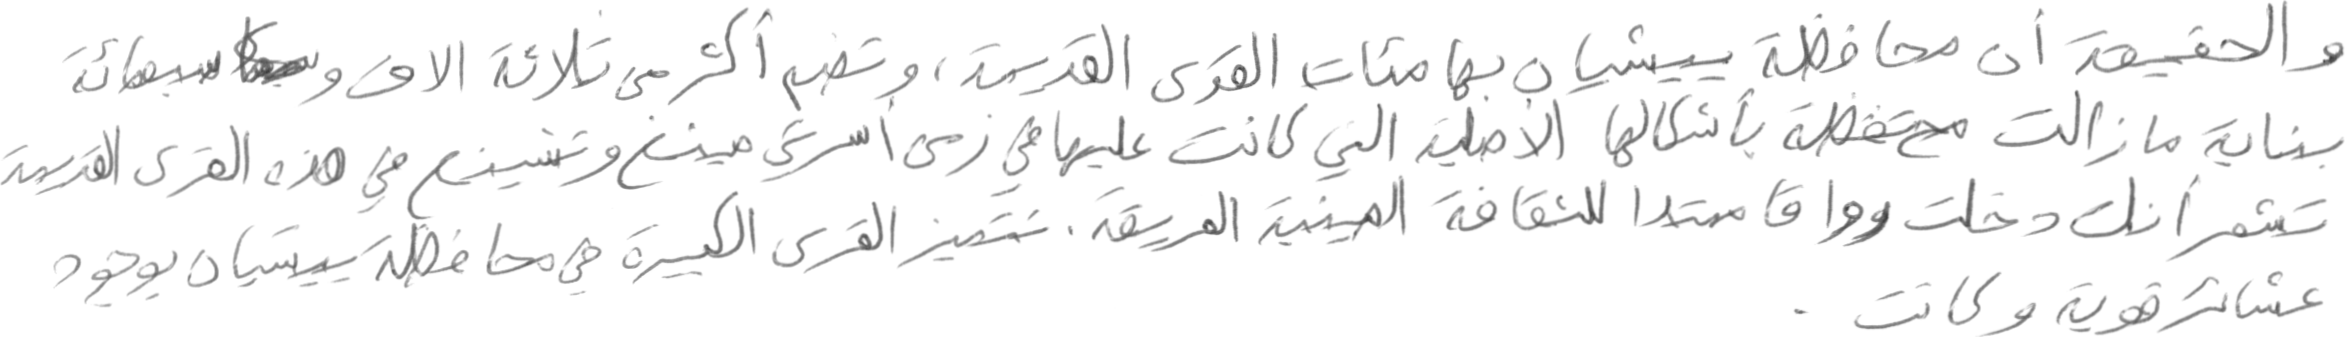 والحقيقة أن محافظة ييشيان بها مئات القرى القديمة، وتضم أكثر من ثلاثة الاف وسبعمائة
بناية مازالت محتفظة بأشكالها الأصلية التي كانت عليها في زمن أسرتي مينغ وتشينغ في هذه القرى القديمة
تشعر أنك دخلت رواقا ممتدا للثقافة الصينية العريقة. تتميز القرى الكبيرة في محافظة ييشيان بوجود
عشائر قوية وكانت .